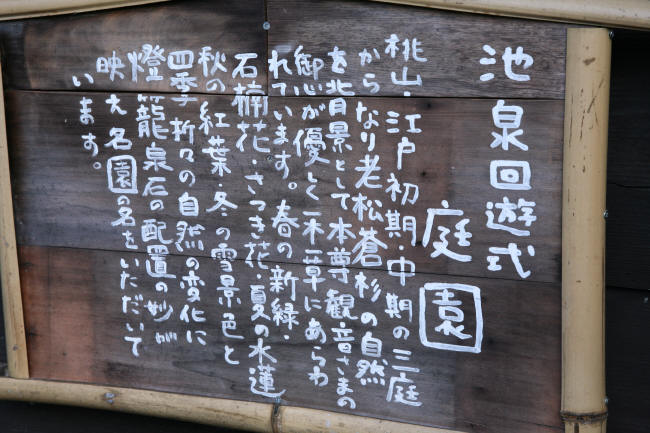 池泉回遊式
庭園
桃山・江戸初期・中期の三庭
からなり老松蒼杉の自然
を背景として本尊観音さまの
御心が優しく一木一草にあらわ
れています。春の新緑・
石楠花・さつき花・夏の水蓮
秋の紅葉・冬の雪景色と
四季折々の自然の変化に
燈籠泉石の配置の妙が
映え名園の名をいただいて
います。